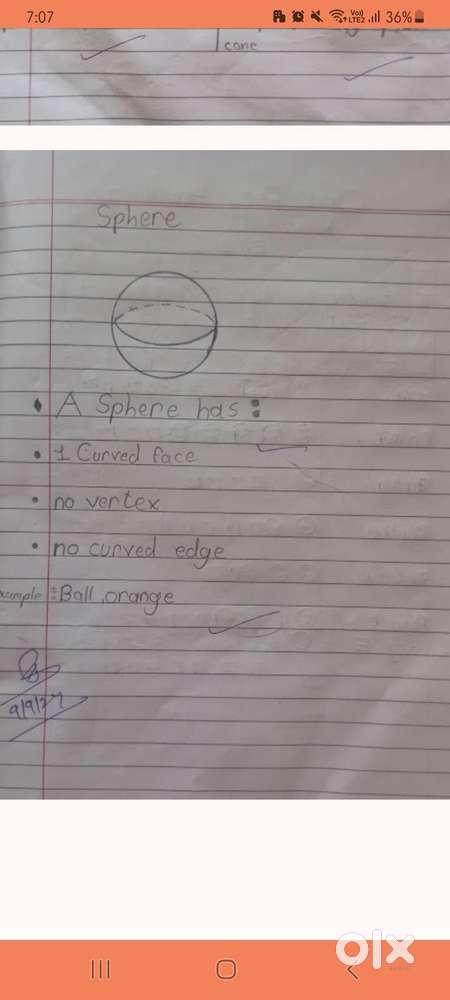 7:07
Vo))
LTE2
36%
cone
Sphere
• A Sphere has :
• 1 Curved face
• no vertex
• no curved edge
:-Ball, orange
olx